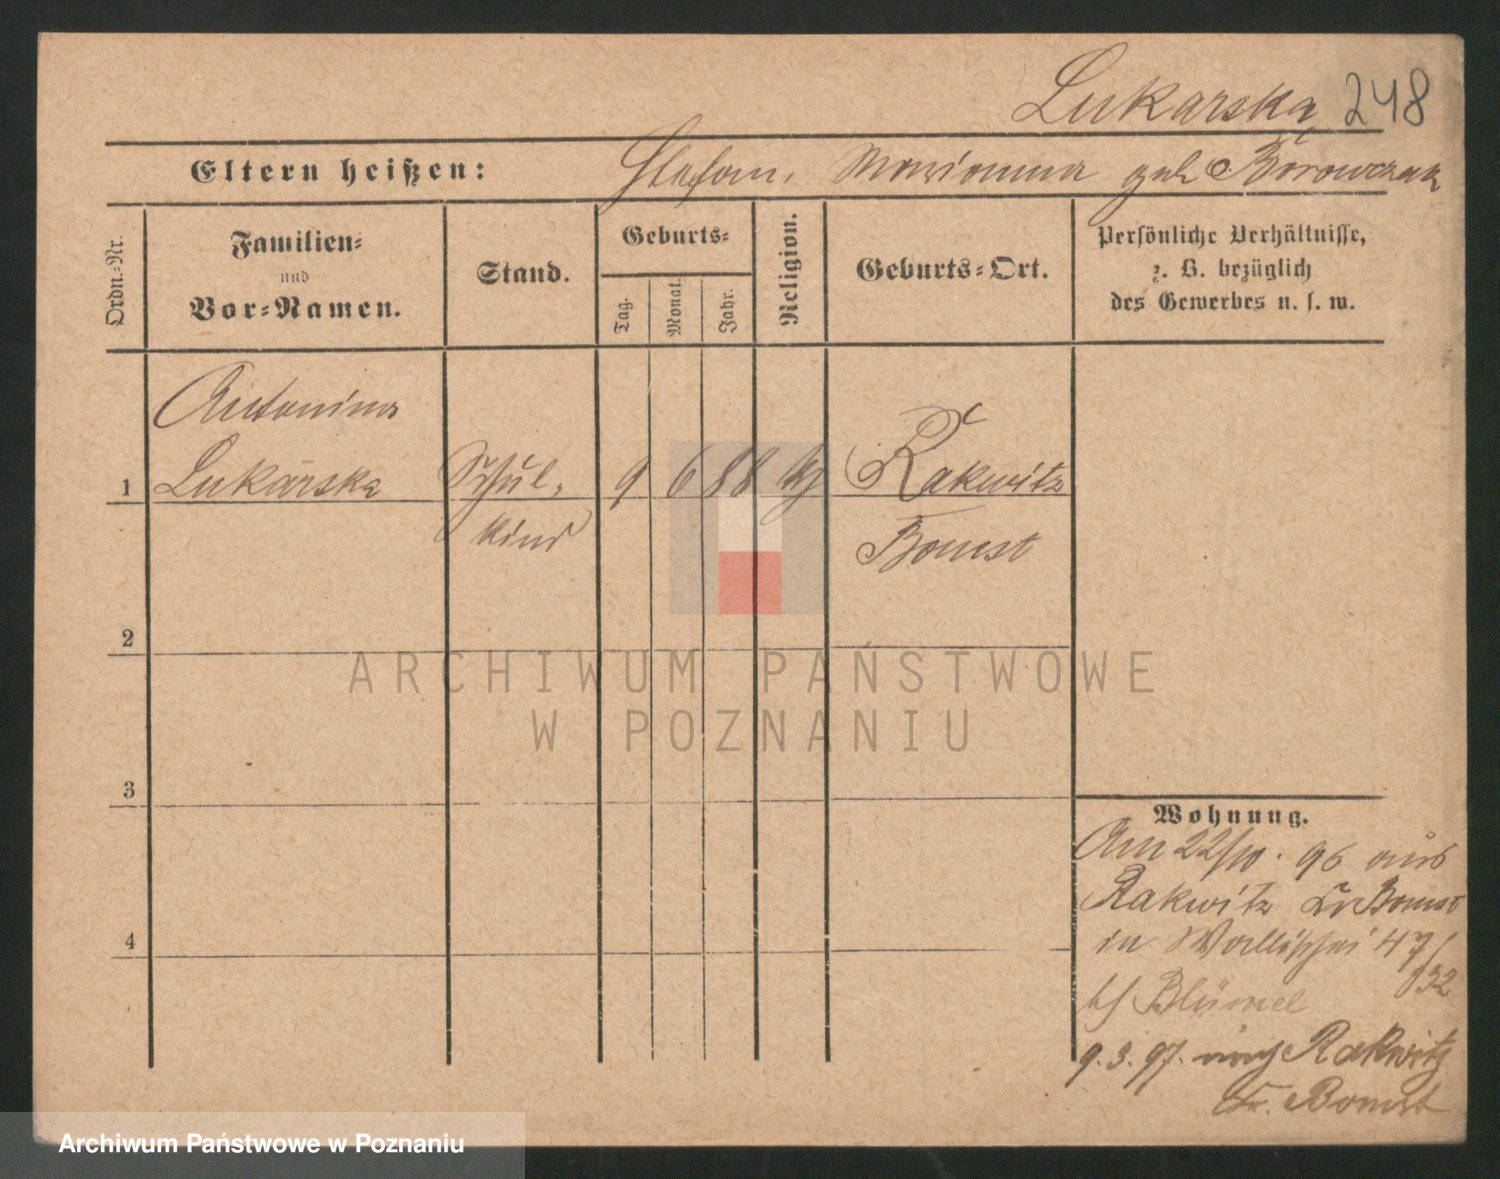 Lukarska 248
Eltern heißen: Stefan, Marianna geb. Borowczak
Ordn.-Nr.
Familien-
und
Vor-Namen.
Stand.
Geburts-
Tag.
Monat.
Jahr.
Religion.
Geburts-Ort.
Persönliche Verhältnisse,
z. B. bezüglich
des Gewerbes u. s. w.
Antonina
1 Lukarska Schul- 9 6 88 Rakwitz
kind Bomst
2
3
4
Wohnung.
Am 22/10. 96 aus
Rakwitz Kr Bomst
in Wallischei 47/
32
bei Blümel
9.3.97. nach Rakwitz
Kr. Bomst
ARCHIWUM PAŃSTWOWE
W POZNANIU
Archiwum Państwowe w Poznaniu